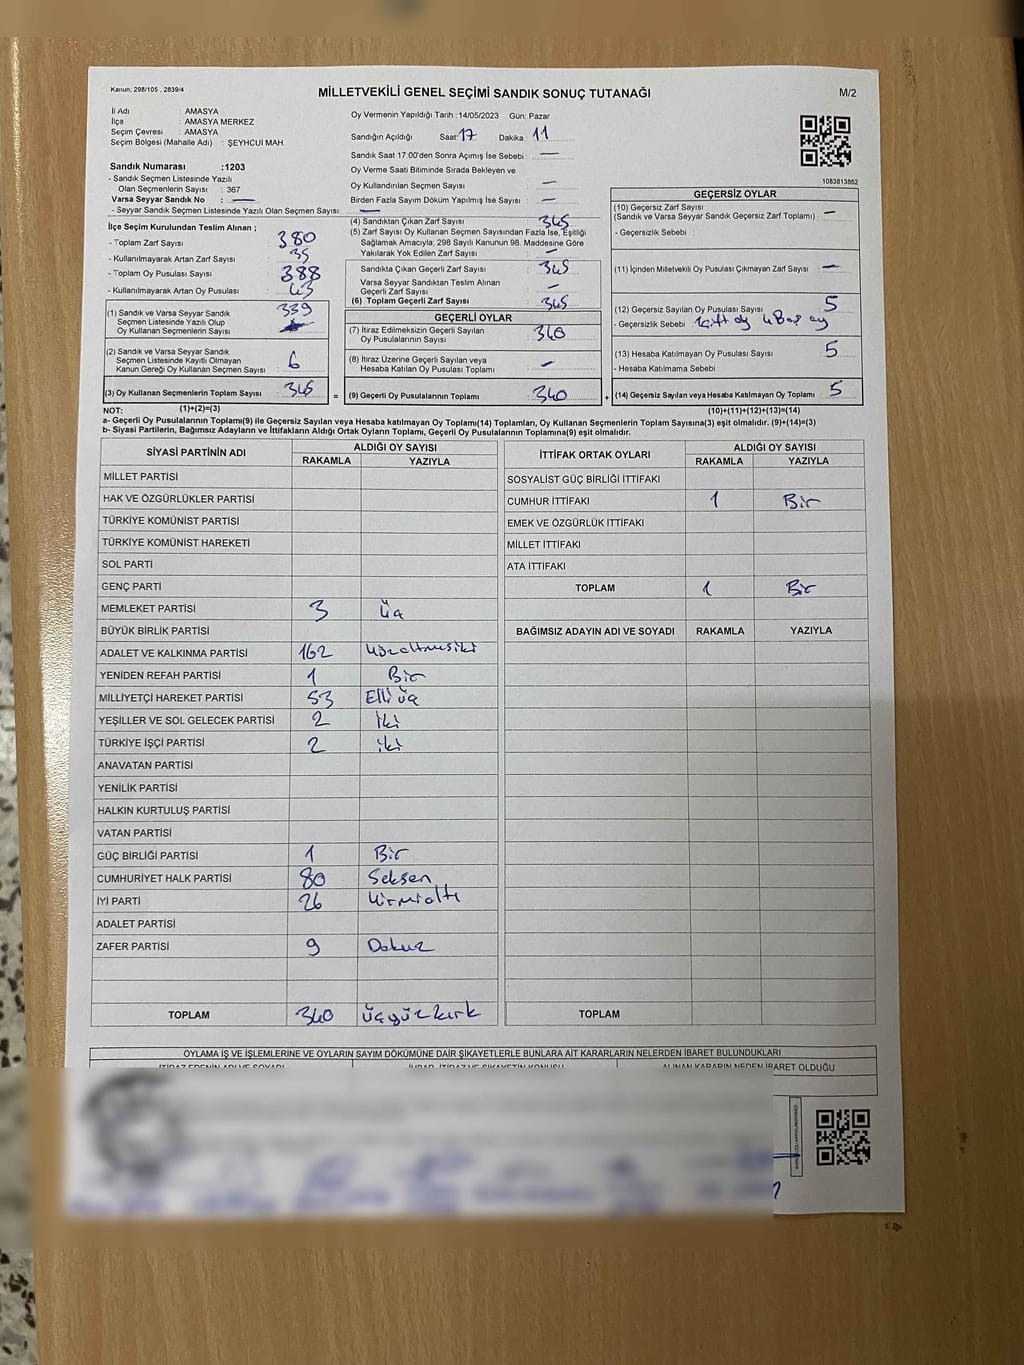 Kanun; 298/105 , 2839/4
MİLLETVEKİLİ GENEL SEÇİMİ SANDIK SONUÇ TUTANAĞI
M/2
İl Adı : AMASYA
İlçe : AMASYA MERKEZ
Seçim Çevresi : AMASYA
Seçim Bölgesi (Mahalle Adı) : ŞEYHCUİ MAH.
Sandık Numarası :1203
- Sandık Seçmen Listesinde Yazılı
Olan Seçmenlerin Sayısı : 367
Varsa Seyyar Sandık No : —
- Seyyar Sandık Seçmen Listesinde Yazılı Olan Seçmen Sayısı: —
İlçe Seçim Kurulundan Teslim Alınan ;
- Toplam Zarf Sayısı : 380
- Kullanılmayarak Artan Zarf Sayısı : 35
- Toplam Oy Pusulası Sayısı : 388
- Kullanılmayarak Artan Oy Pusulası : 43
(1) Sandık ve Varsa Seyyar Sandık
Seçmen Listesinde Yazılı Olup
Oy Kullanan Seçmenlerin Sayısı : 339
(2) Sandık ve Varsa Seyyar Sandık
Seçmen Listesinde Kayıtlı Olmayan
Kanun Gereği Oy Kullanan Seçmen Sayısı : 6
(3) Oy Kullanan Seçmenlerin Toplam Sayısı : 345
(1)+(2)=(3)
Oy Vermenin Yapıldığı Tarih : 14/05/2023 Gün: Pazar
Sandığın Açıldığı Saat: 17 Dakika : 11
Sandık Saat 17:00'den Sonra Açımış İse Sebebi : —
Oy Verme Saati Bitiminde Sırada Bekleyen ve
Oy Kullandırılan Seçmen Sayısı : —
Birden Fazla Sayım Döküm Yapılmış İse Sayısı : —
(4) Sandıktan Çıkan Zarf Sayısı : 345
(5) Zarf Sayısı Oy Kullanan Seçmen Sayısından Fazla İse, Eşitliği
Sağlamak Amacıyla, 298 Sayılı Kanunun 98. Maddesine Göre
Yakılarak Yok Edilen Zarf Sayısı : —
Sandıkta Çıkan Geçerli Zarf Sayısı : 345
Varsa Seyyar Sandıktan Teslim Alınan
Geçerli Zarf Sayısı : —
(6) Toplam Geçerli Zarf Sayısı : 345
GEÇERLİ OYLAR
(7) İtiraz Edilmeksizin Geçerli Sayılan
Oy Pusulalarının Sayısı : 340
(8) İtiraz Üzerine Geçerli Sayılan veya
Hesaba Katılan Oy Pusulası Toplamı : —
= (9) Geçerli Oy Pusulalarının Toplamı : 340
1083813862
GEÇERSİZ OYLAR
(10) Geçersiz Zarf Sayısı : —
(Sandık ve Varsa Seyyar Sandık Geçersiz Zarf Toplamı)
- Geçersizlik Sebebi :
(11) İçinden Milletvekili Oy Pusulası Çıkmayan Zarf Sayısı : —
(12) Geçersiz Sayılan Oy Pusulası Sayısı : 5
- Geçersizlik Sebebi : 1 çift oy 4 Boş oy
(13) Hesaba Katılmayan Oy Pusulası Sayısı : 5
- Hesaba Katılmama Sebebi :
+ (14) Geçersiz Sayılan veya Hesaba Katılmayan Oy Toplamı : 5
(10)+(11)+(12)+(13)=(14)
NOT:
a- Geçerli Oy Pusulalarının Toplamı(9) ile Geçersiz Sayılan veya Hesaba katılmayan Oy Toplamı(14) Toplamları, Oy Kullanan Seçmenlerin Toplam Sayısına(3) eşit olmalıdır. (9)+(14)=(3)
b- Siyasi Partilerin, Bağımsız Adayların ve İttifakların Aldığı Ortak Oyların Toplamı, Geçerli Oy Pusulalarının Toplamına(9) eşit olmalıdır.
SİYASİ PARTİNİN ADI ALDIĞI OY SAYISI
RAKAMLA YAZIYLA
MİLLET PARTİSİ
HAK VE ÖZGÜRLÜKLER PARTİSİ
TÜRKİYE KOMÜNİST PARTİSİ
TÜRKİYE KOMÜNİST HAREKETİ
SOL PARTİ
GENÇ PARTİ
MEMLEKET PARTİSİ 3 üç
BÜYÜK BİRLİK PARTİSİ
ADALET VE KALKINMA PARTİSİ 162 yüzaltmışiki
YENİDEN REFAH PARTİSİ 1 Bir
MİLLİYETÇİ HAREKET PARTİSİ 53 Elli üç
YEŞİLLER VE SOL GELECEK PARTİSİ 2 iki
TÜRKİYE İŞÇİ PARTİSİ 2 iki
ANAVATAN PARTİSİ
YENİLİK PARTİSİ
HALKIN KURTULUŞ PARTİSİ
VATAN PARTİSİ
GÜÇ BİRLİĞİ PARTİSİ 1 Bir
CUMHURİYET HALK PARTİSİ 80 Seksen
İYİ PARTİ 26 yirmialtı
ADALET PARTİSİ
ZAFER PARTİSİ 9 Dokuz
TOPLAM 340 üçyüzkırk
İTTİFAK ORTAK OYLARI ALDIĞI OY SAYISI
RAKAMLA YAZIYLA
SOSYALİST GÜÇ BİRLİĞİ İTTİFAKI
CUMHUR İTTİFAKI 1 Bir
EMEK VE ÖZGÜRLÜK İTTİFAKI
MİLLET İTTİFAKI
ATA İTTİFAKI
TOPLAM 1 Bir
BAĞIMSIZ ADAYIN ADI VE SOYADI RAKAMLA YAZIYLA
TOPLAM
OYLAMA İŞ VE İŞLEMLERİNE VE OYLARIN SAYIM DÖKÜMÜNE DAİR ŞİKAYETLERLE BUNLARA AİT KARARLARIN NELERDEN İBARET BULUNDUKLARI
ALINAN KARARIN NEDEN İBARET OLDUĞU